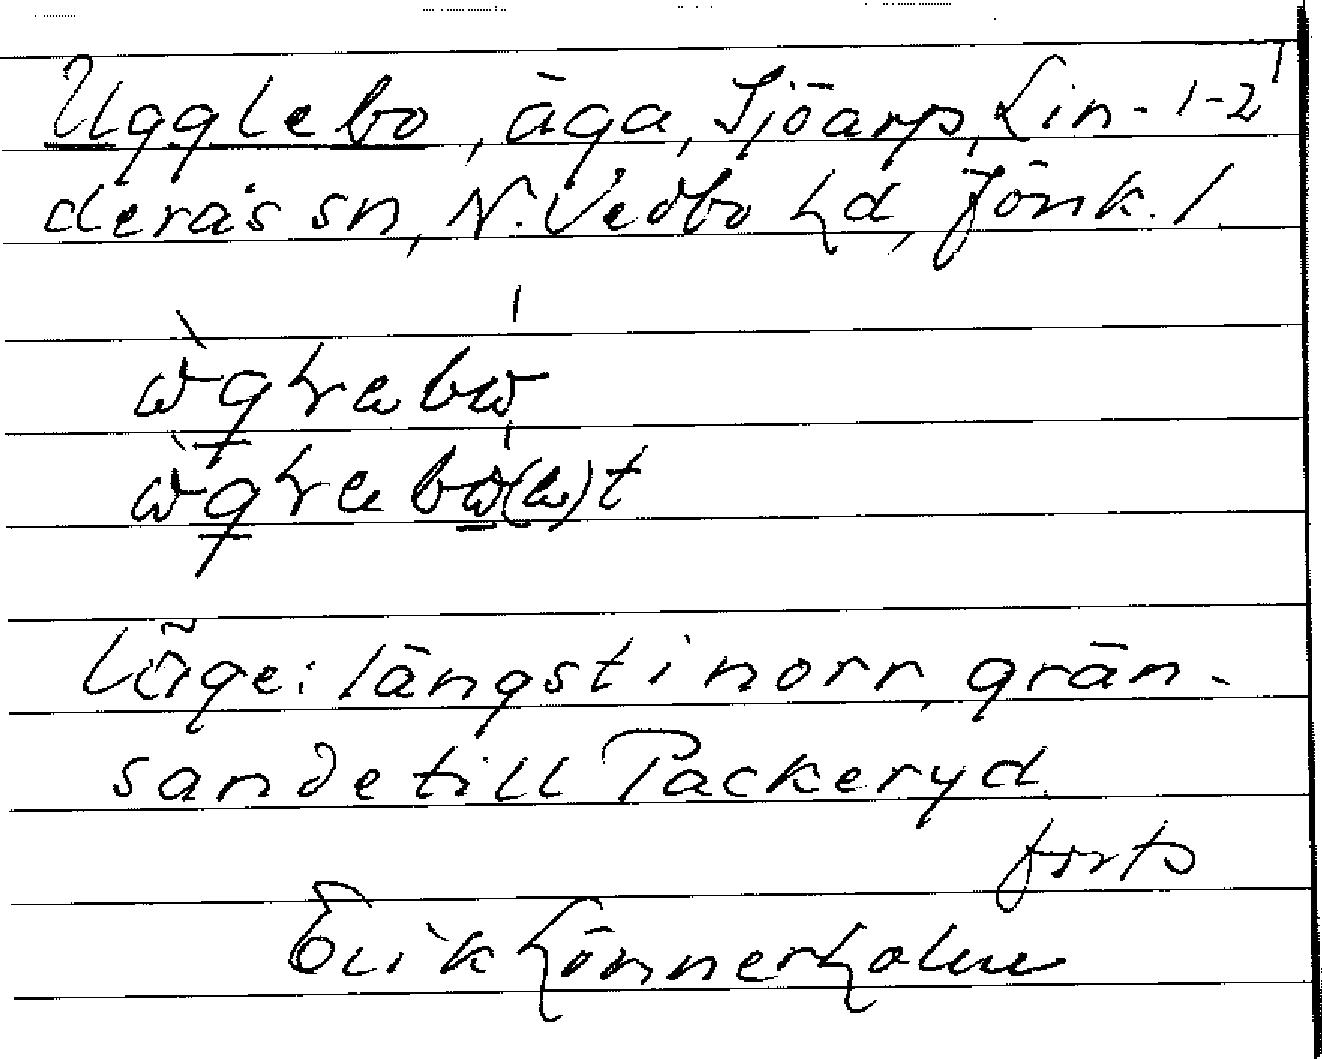 Ugglebo, äga, Sjöarp, Lin- 1-2
deràs sn, N. Vedbo hd, Jönk. l.
Läge: längst i norr, grän-
sande till Packeryd.
forts
Erik Lönnerholm